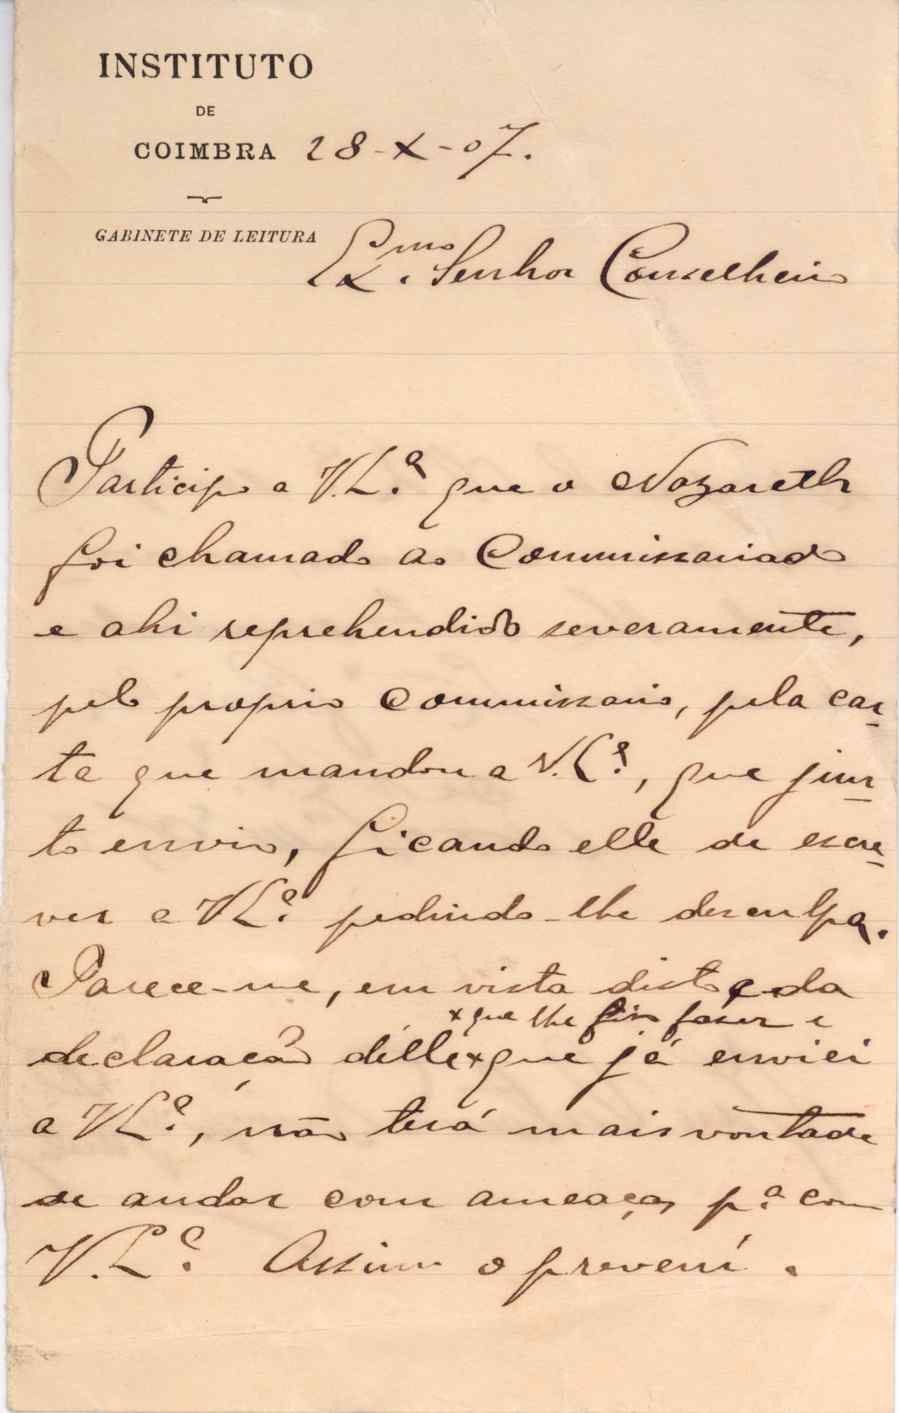 INSTITUTO
DE
COIMBRA 28-X-07.
GABINETE DE LEITURA
Ex.mo Senhor Conselheiro
Participo a V. Ex.ª que o Nazareth
foi chamado ao Commissariado
e ahi reprehendido severamente,
pelo proprio Commissario, pela car-
ta que mandou a V. Ex.ª, que jun-
to envio, ficando elle de escre-
ver a V Ex.ª pedindo-lhe desculpa.
Parece-me, em vista disto e da
x que lhe fiz fazer e
declaração délle x que já enviei
a V Ex.ª, não terá mais vontade
de andar com ameaças p.ª com
V. Ex.ª. Assim o preveni.